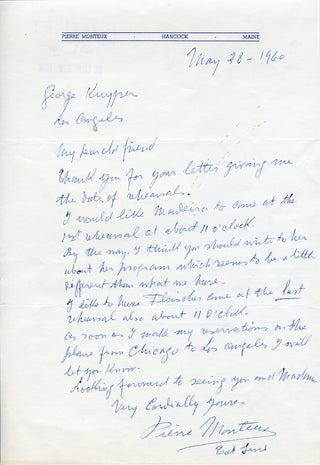 PIERRE MONTEUX · HANCOCK · MAINE
May 28 - 1960
George Kuyper
Los Angeles
My dear old friend
Thank you for your letter giving me
the dates of rehearsals.
I would like Madeira to come at the
1st rehearsal at about 11 o'clock.
By the way, I think you should write to her
about her program which seems to be a little
different than what we have.
I like to have Fleischer come at the last
rehearsal also about 11 o'clock.
as soon as I make my reservations on the
plane from Chicago to Los Angeles I will
let you know.
Looking forward to seeing you and Madame
Very Cordially yours
Pierre Monteux